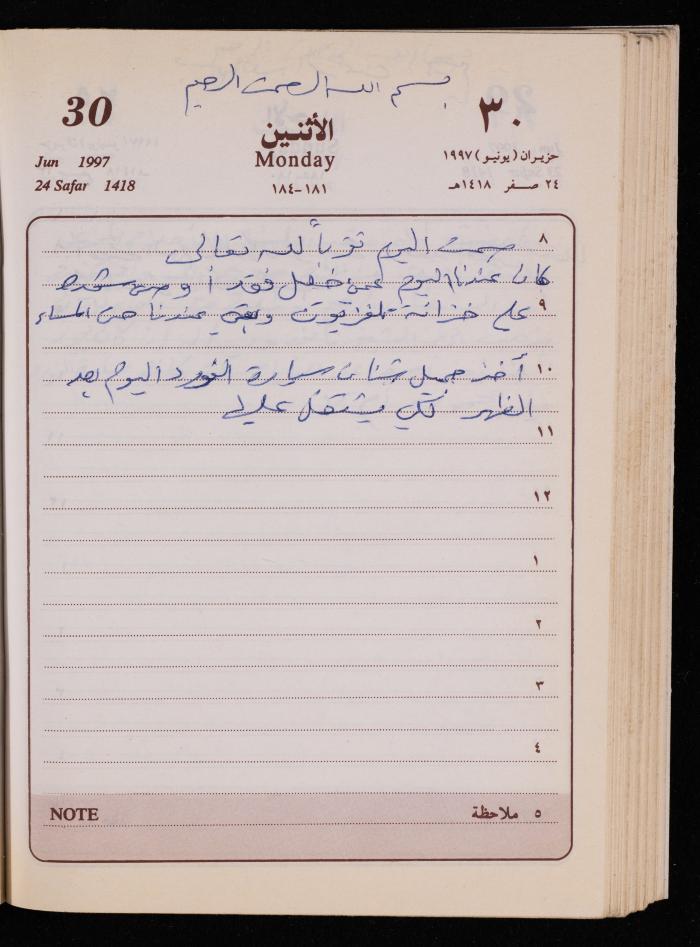 بسم الله الرحمن الرحيم
30
٣٠
الأثنين
Jun 1997
Monday
حزيران (يونيو) ١٩٩٧
24 Safar 1418
١٨١-١٨٤
٢٤ صفر ١٤١٨هـ
٨
صمت اليوم تقرباً لله تعالى
كان عندنا اليوم
٩
على خزانة تلفزيون وبقي عندنا حتى المساء
١٠
أخذ جميل شنان سيارة الفورد اليوم بعد
الظهر لكي يشتغل عليها
١١
١٢
١
٢
٣
٤
NOTE
٥ ملاحظة